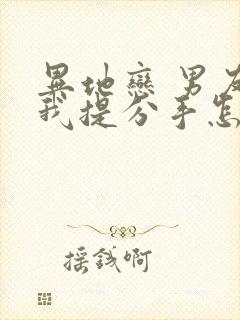 異地戀 男友
我提分手怎
摇錢啊